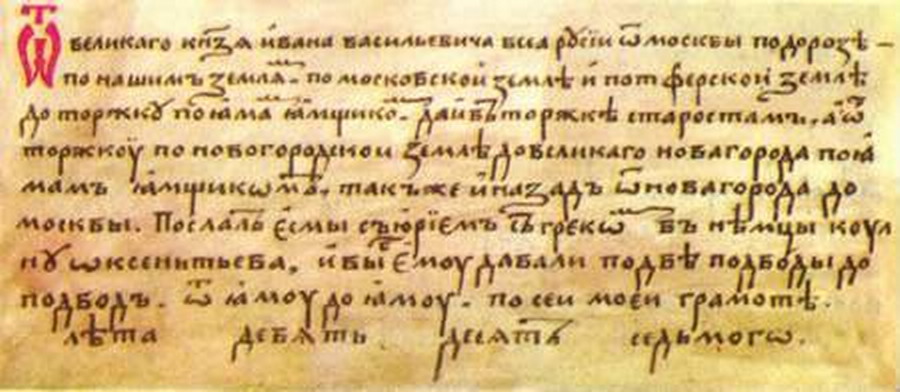 Ѿ великаго кн҃зѧ ивана васильевича всеа рꙋсіи ѿ москвы по дорозѣ —
по нашимъ землѧᷨ. по московскои землѣ и по тферскои землѣ
до торжкꙋ по ꙗмаᷨ ꙗмщикоᷨ. да и въ торжкѣ старостамъ, а ѿ
торжкоу по новогородскои землѣ до великаго новагорода по ꙗ
мамъ ꙗмщикѡмъ. такъже и назадъ ѿ новагорода до
москвы. Послалъ есмы съ юріемъ съ грекѡᷨ въ нѣмцы коул
нꙋ ѡксентьева, и вы бъ емоу давали подвѣ подводы до
подводъ. ѿ ꙗмоу до ꙗмоу. по сеи моеи грамотѣ.
лѣта девѧть десѧтъ седьмогѡ.